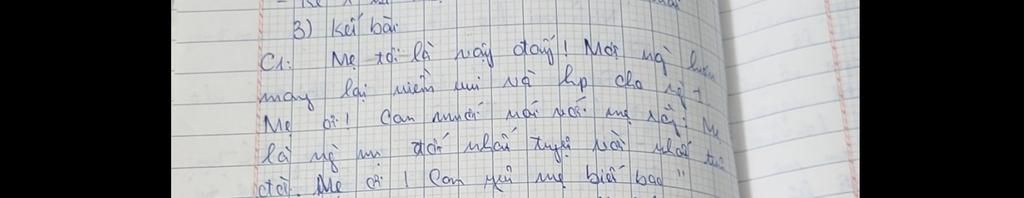 3) Kết bài
C1: Mẹ tôi là vậy đấy! Một ng luôn
mang lại niềm vui và hp cho ng ≠
Mẹ ơi! Con muốn nói với mẹ rằng: Mẹ
là ng mẹ tốt nhất tuyệt vời nhất trên
đời. Mẹ ơi! Con yêu mẹ biết bao"